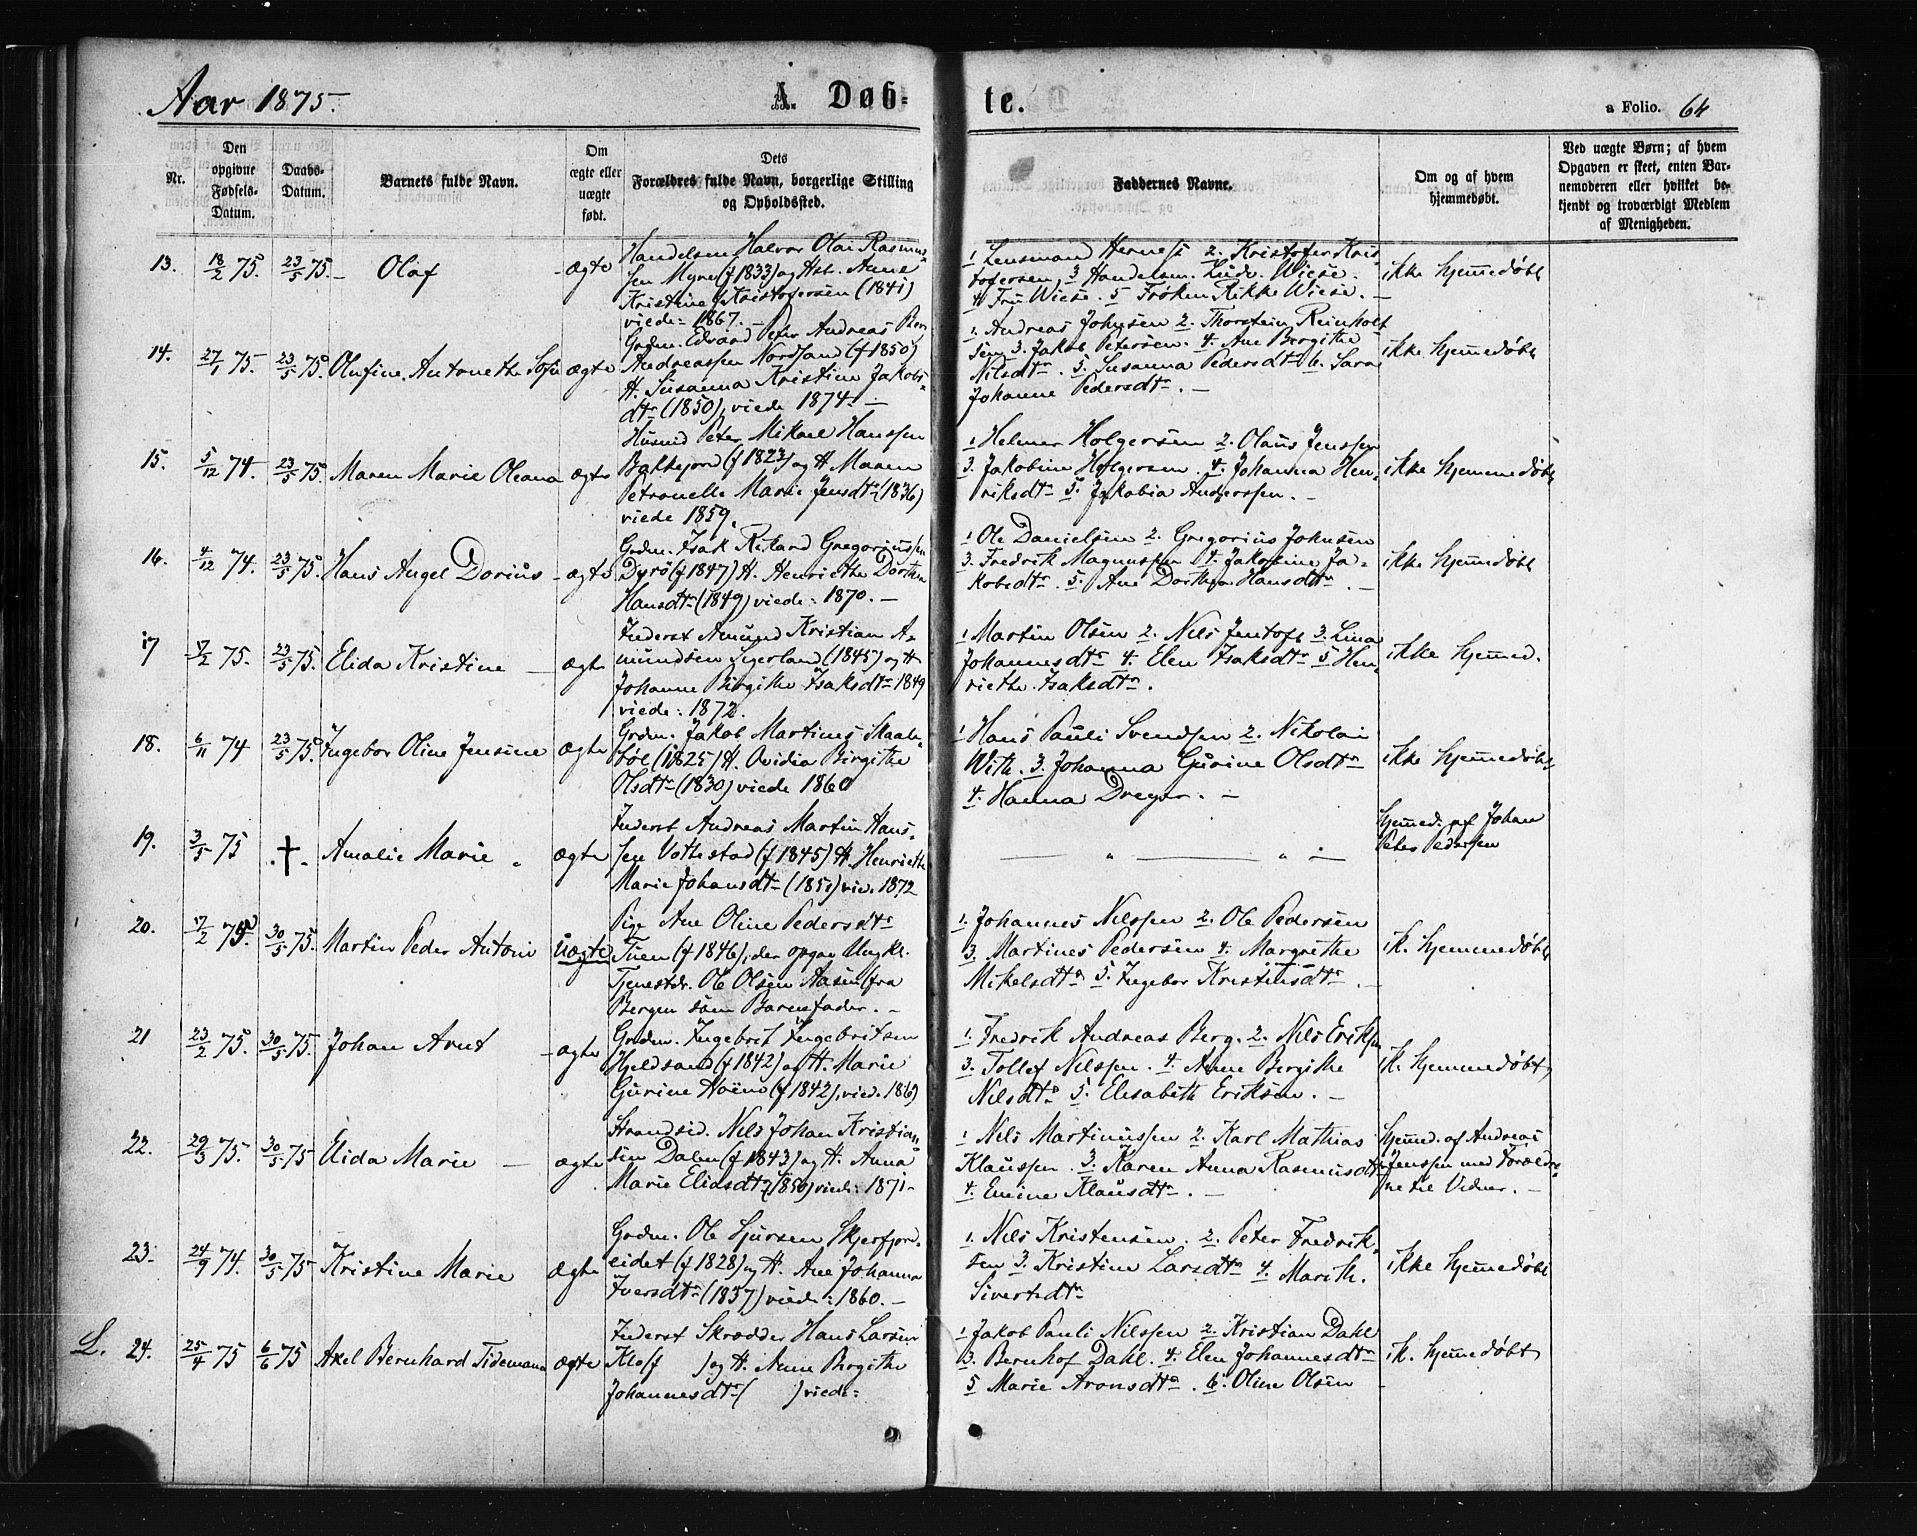 Aar 1875.
A. Døb-
te.
a Folio. 64
Nr.
Den opgivne Fødsels-Datum.
Daabs-Datum.
Barnets fulde Navn.
Om ægte eller uægte født.
Dets Forældres fulde Navn, borgerlige Stilling og Opholdssted.
Faddernes Navne.
Om og af hvem hjemmedøbt.
Ved uægte Børn; af hvem Opgaven er skeet, enten Barnemoderen eller hvilket bekjendt og troværdigt Medlem af Menigheden.
13. 18/2 75. 23/5 75. Olaf ægte
Handelsm Halvor Olai Rasmus-
sen Myre (f 1833) og Hst. Anne
Kristine Kristofersen (1841)
viede: 1867.
1 Lensmand 2. Kristofer Kris-
tofersen, 3 Handelsm. Ludv. Wiese.
4 Fru Wiese. 5 Frøken Rikke Wiese.
ikke hjemmedøbt
14. 27/1 75. 23/5 75. Olufine Antonethe Sofie ægte
Grdm. Edvard Peter Andreas Berg
Andreassen Nordsand (f 1850)
H. Susanna Kristine Jakobs-
dtr (1850), viede 1874
1. Andreas Johnsen 2. Thorstein Reinholt
sen 3. Jakob Petersen. 4. Ane Bergithe
Nilsdtr. 5. Susanna Pedersdtr 6. Sara
Johanne Pedersdtr.
ikke hjemmedøbt
15. 5/12 74. 23/5 75. Maren Marie Oleana ægte
Husmd Peter Mikael Hanssen
(f 1823) og H Maren
Petronelle Marie Jensdtr (1836)
viede 1859.
1 Helmer Holgersen 2. Olaus Jenssen
3. Jakobine Holgersen. 4. Johanna Hen-
riksdtr 5. Jakobia Anderssen.
ikke hjemmedøbt
16. 4/12 74. 23/5 75. Hans Angel Dorius ægte
Grdm. Isak Rikard Gregoriussen
Dyrø (f 1847) H. Henriethe Dorthea
Hansdtr (1849) viede: 1870.
1 Ole Danielsen 2. Gregorius Johnsen
3. Fredrik Magnussen 4. Jakobine Ja-
kobsdtr. 5. Ane Dorthea Hansdtr.
ikke hjemmedøbt
17 17/2 75. 23/5 75. Elida Kristine ægte
Inderst Amund Kristian A-
mundsen (1845) og H
Johanne Birgithe Isaksdtr 1849
viede: 1872.
1 Martin Olsen 2. Nils Jentoft 3. Lina
Johannesdtr 4. Elen Isaksdtr 5 Hen-
riethe Isaksdtr.
ikke hjemmed.
18. 6/11 74 23/5 75. Ingebor Oline Jensine ægte
Grdm. Jakob Martinus Skaale-
bøl (1825) H. Ovidia Birgithe
Olsdtr (1830) viede 1860
1 Hans Pauli Svendsen 2. Nikolai
With. 3. Johanna Gurine Olsdtr
4. Hanna Dreyer.
ikke hjemmedøbt
19. 3/5 75 † Amalie Marie ægte
Inderst Andreas Martin Hans-
sen Vottestad (f 1845) H. Henriethe
Marie Johansdtr (1851) vied. 1872
hjemmed. af Johan
Peter Pedersen
20. 17/2 75. 30/5 75. Martin Peder Antoni uægte
Pige Ane Oline Pedersdtr
Tuen (f 1846), der opgav Ungkl.
Tjenestdr. Ole Olsen Aasen fra
Bergen som Barnefader.
1. Johannes Nilssen 2. Ole Pedersen
3. Martines Pedersen 4. Margrethe
Mikelsdtr 5. Ingebor Kristensdtr.
ik. hjemmedøbt
21 23/2 75. 30/5 75. Johan Arnt ægte
Grdm. Ingebrit Ingebritsen
Hjeldsand (f 1842) og H. Marie
Gurine (f 1842), vied. 1869
1. Fredrik Andreas Berg. 2. Nils Eriksen
3. Tollef Nilssen. 4. Anne Bergithe
Nilsdtr 5. Elisabeth Eriksen.
ik. hjemmedøbt
22. 29/3 75. 30/5 75 Elida Marie ægte
Strandsid. Nils Johan Kristian-
sen Dalen (f 1843) og H. Anna
Marie Eliasdtr (1850) viede: 1871
1 Nils Martinussen 2. Karl Mathias
Klaussen. 3. Karen Anna Rasmusdtr
4. Emine Klausdtr.
hjemmed. af Andreas
Jenssen med Forældre-
ne til Vidner.
23. 24/9 74. 30/5 75 Kristine Marie ægte
Grdm. Ole Sjursen Skjerfjord-
eidet (f 1828) og H. Ane Johanna
Iversdtr (1837) viede: 1860.
1. Nils Kristensen. 2. Peter Fredrik-
sen 3. Kristine Larsdtr 4. Marith.
Sivertsdtr
ikke hjemmedøbt
L. 24. 25/4 75 6/6 75 Axel Bernhard Tidemann ægte
Inderst Skrædder Hans Larsen
Kleff ) og H. Anne Birgithe
Johannesdtr ( ) viede:
1 Jakob Pauli Nilssen 2. Kristian Dahl
3. Bernhof Dahl. 4. Elen Johannesdtr
5 Marie Aronsdtr. 6. Oline Olsen
ik. hjemmedøbt